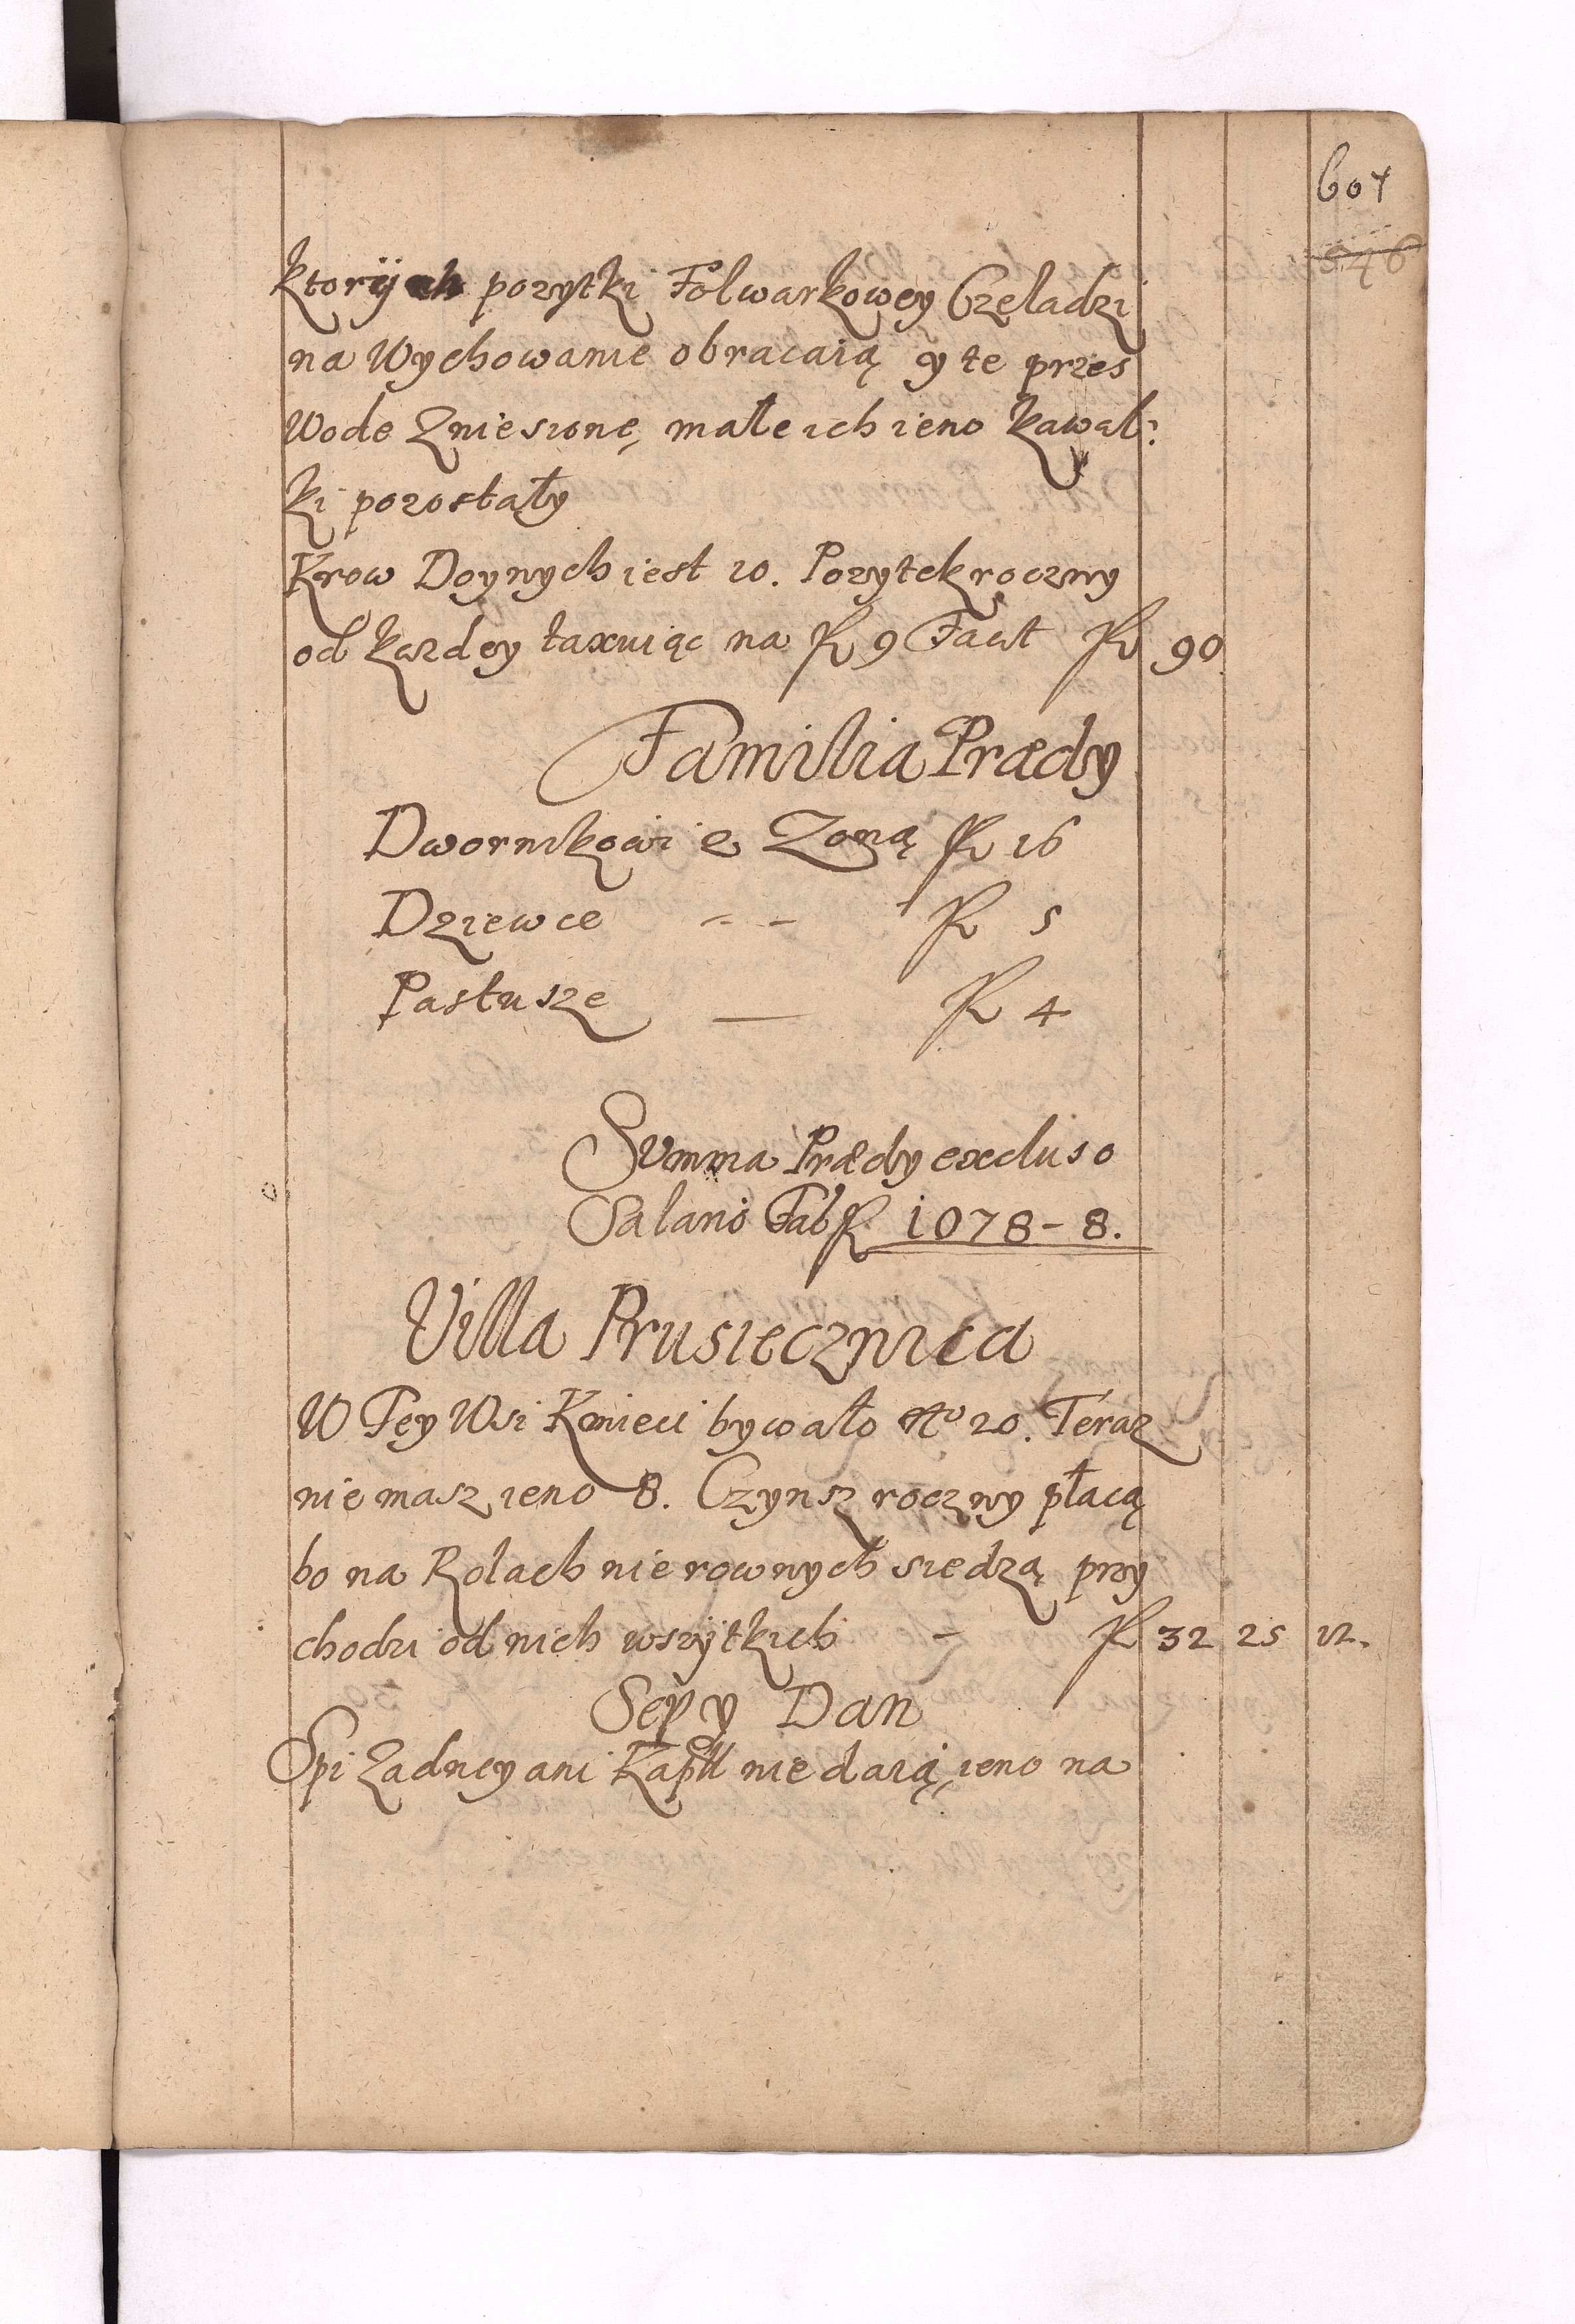 607
546
ktorÿch pozytki Folwarkowey Czeladzi
na Wychowanie obracaią y te przes
Wode Zniesione, małe ich ieno kawał:
ki pozostały
Krow Doynych iest 10. Pozytek roczny
od kazdey taxuiąc na R 9 Facit R 90
Familia Prædy
Dwornikowi e Zoną R 16
Dziewce - - R 5
Pastusze — R 4
Summa Prædy excluso
Salario Fab R 1078 - 8.
Villa Prusiecznica
W Tey Wsi Kmieci bywało No 20. Teraz
nie masz ieno 8. Czynsz roczny płacą
bo na Rolach nie rownych siedzą przy
chodzi od nich wszÿtkich - R 32 25 12.
Sepy Dan
Spi Zadney ani Kapłł nie daią, ieno na